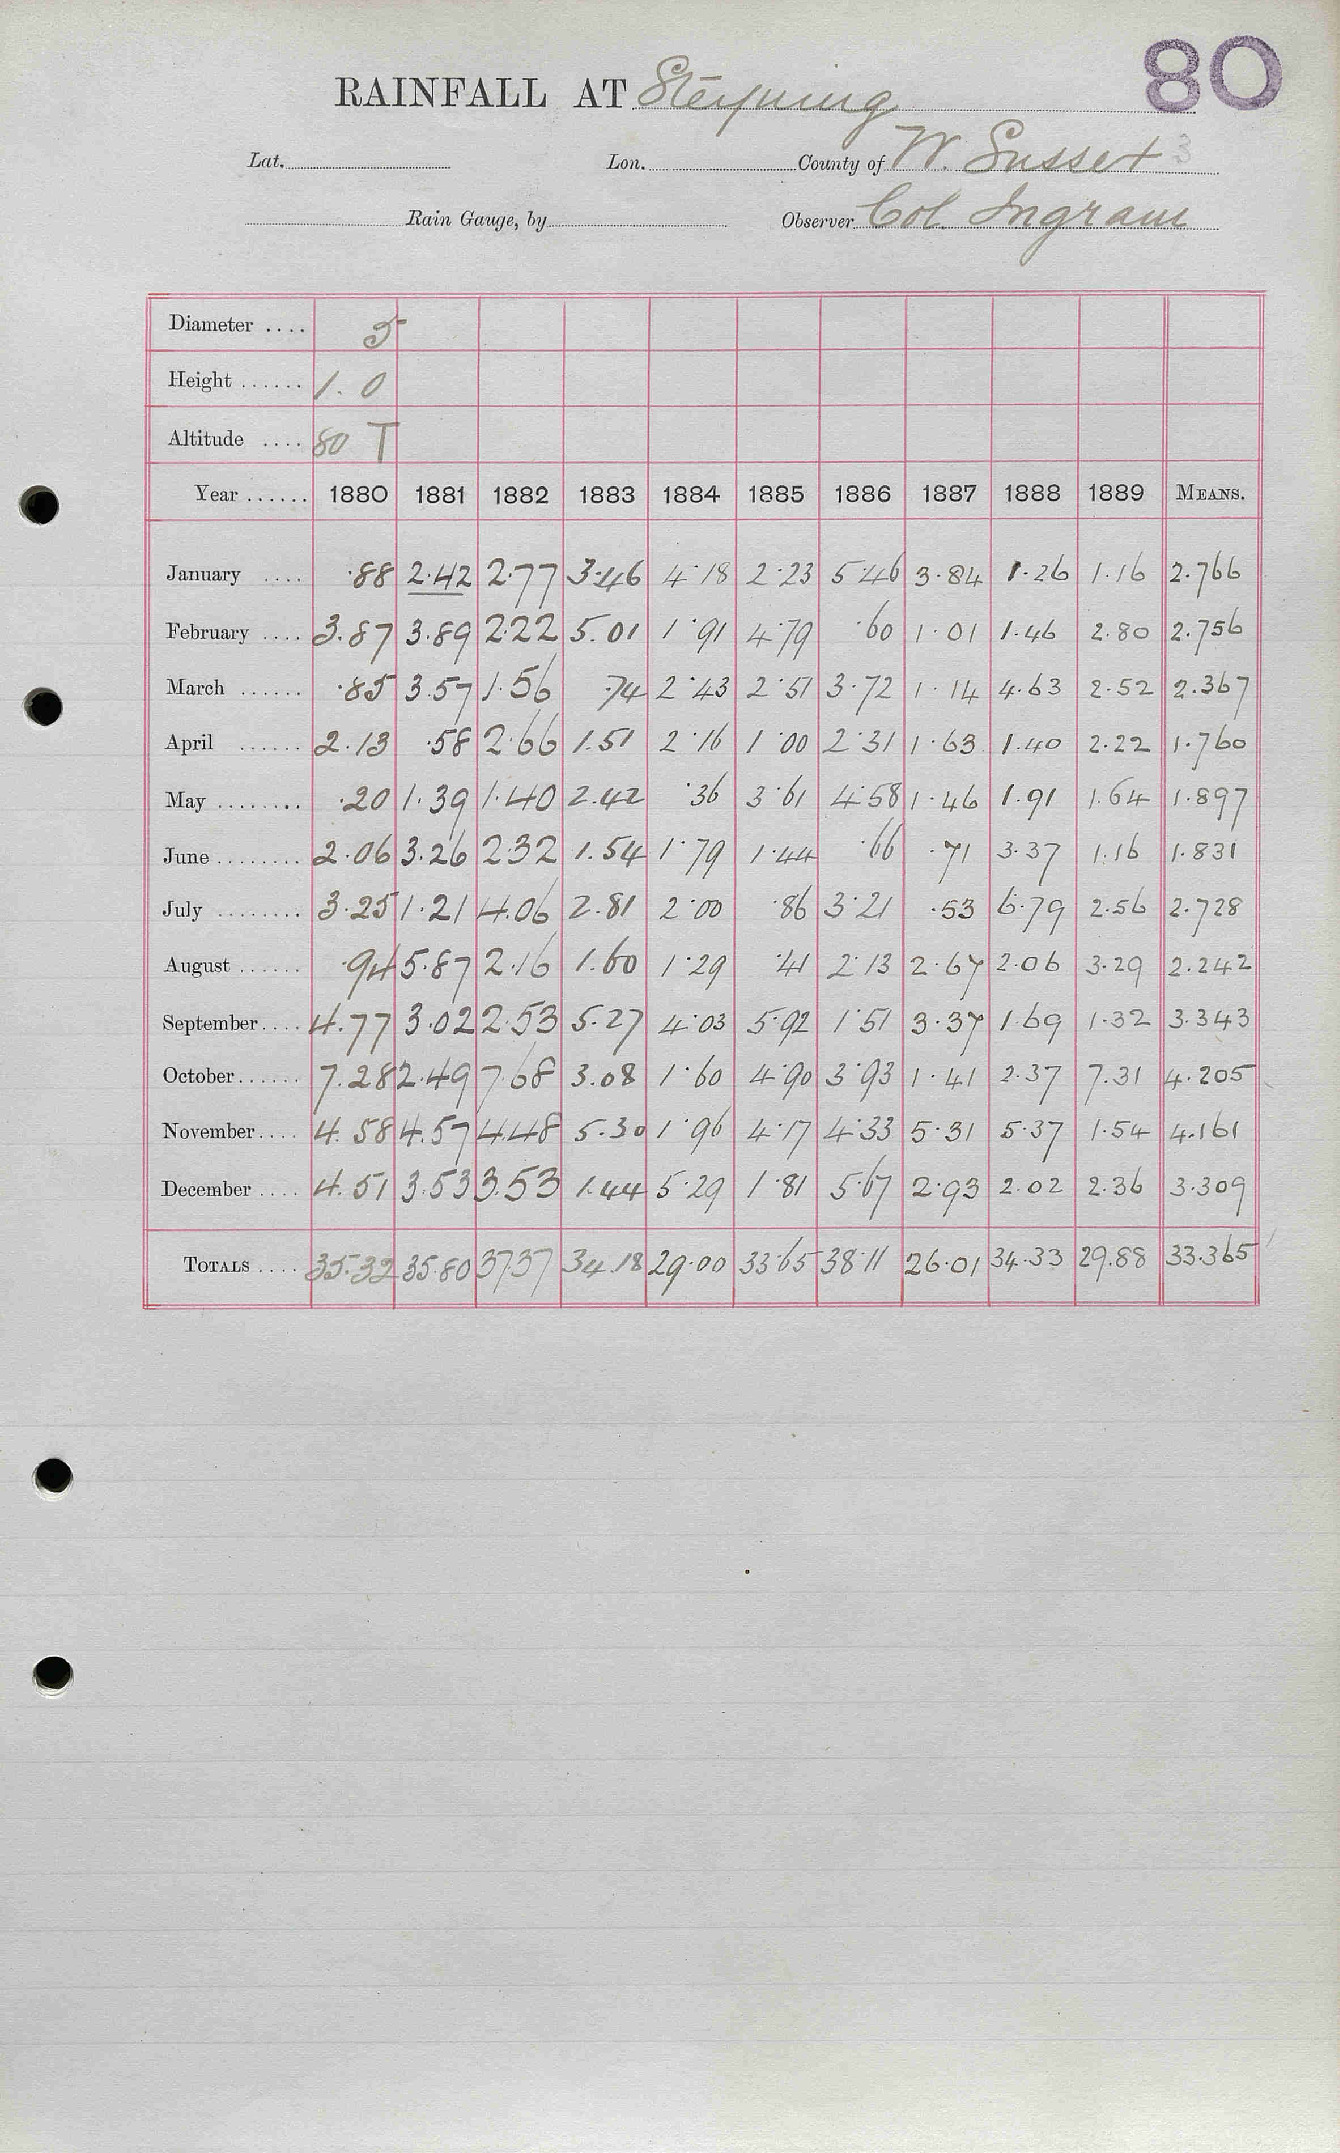 80
RAINFALL AT Steyning
Lat. Lon. County of W. Sussex 3
Rain Gauge, by Observer Col. Ingram
Diameter .... 5
Height ...... 1. 0
Altitude .... 80 T
Year ...... 1880 1881 1882 1883 1884 1885 1886 1887 1888 1889 MEANS.
January .... ·88 2·42 2·77 3·46 4·18 2·23 5·46 3·84 1·26 1.16 2.766
February .... 3.87 3.89 2.22 5.01 1·91 4·79 ·60 1·01 1.46 2.80 2.756
March ...... ·85 3.57 1.56 .74 2·43 2·51 3·72 1·14 4.63 2.52 2.367
April ...... 2.13 ·58 2·66 1.51 2·16 1·00 2·31 1·63 1.40 2.22 1.760
May ........ ·20 1·39 1·40 2.42 ·36 3·61 4·58 1·46 1.91 1.64 1.897
June ........ 2·06 3.26 2.32 1.54 1·79 1·44 ·66 ·71 3·37 1.16 1.831
July ........ 3·25 1·21 4.06 2.81 2·00 ·86 3·21 ·53 6·79 2.56 2.728
August ...... ·94 5.87 2·16 1.60 1·29 ·41 2·13 2·67 2·06 3.29 2.242
September.... 4.77 3.02 2.53 5.27 4·03 5·92 1·51 3·37 1.69 1.32 3.343
October...... 7.28 2.49 7.68 3.08 1·60 4·90 3·93 1·41 2.37 7.31 4.205
November.... 4.58 4.57 4.48 5.30 1·96 4·17 4·33 5·31 5.37 1.54 4.161
December .... 4.51 3.53 3.53 1.44 5·29 1·81 5·67 2·93 2.02 2.36 3.309
TOTALS .... 35.32 35.80 37.37 34.18 29·00 33·65 38·11 26·01 34.33 29.88 33.365